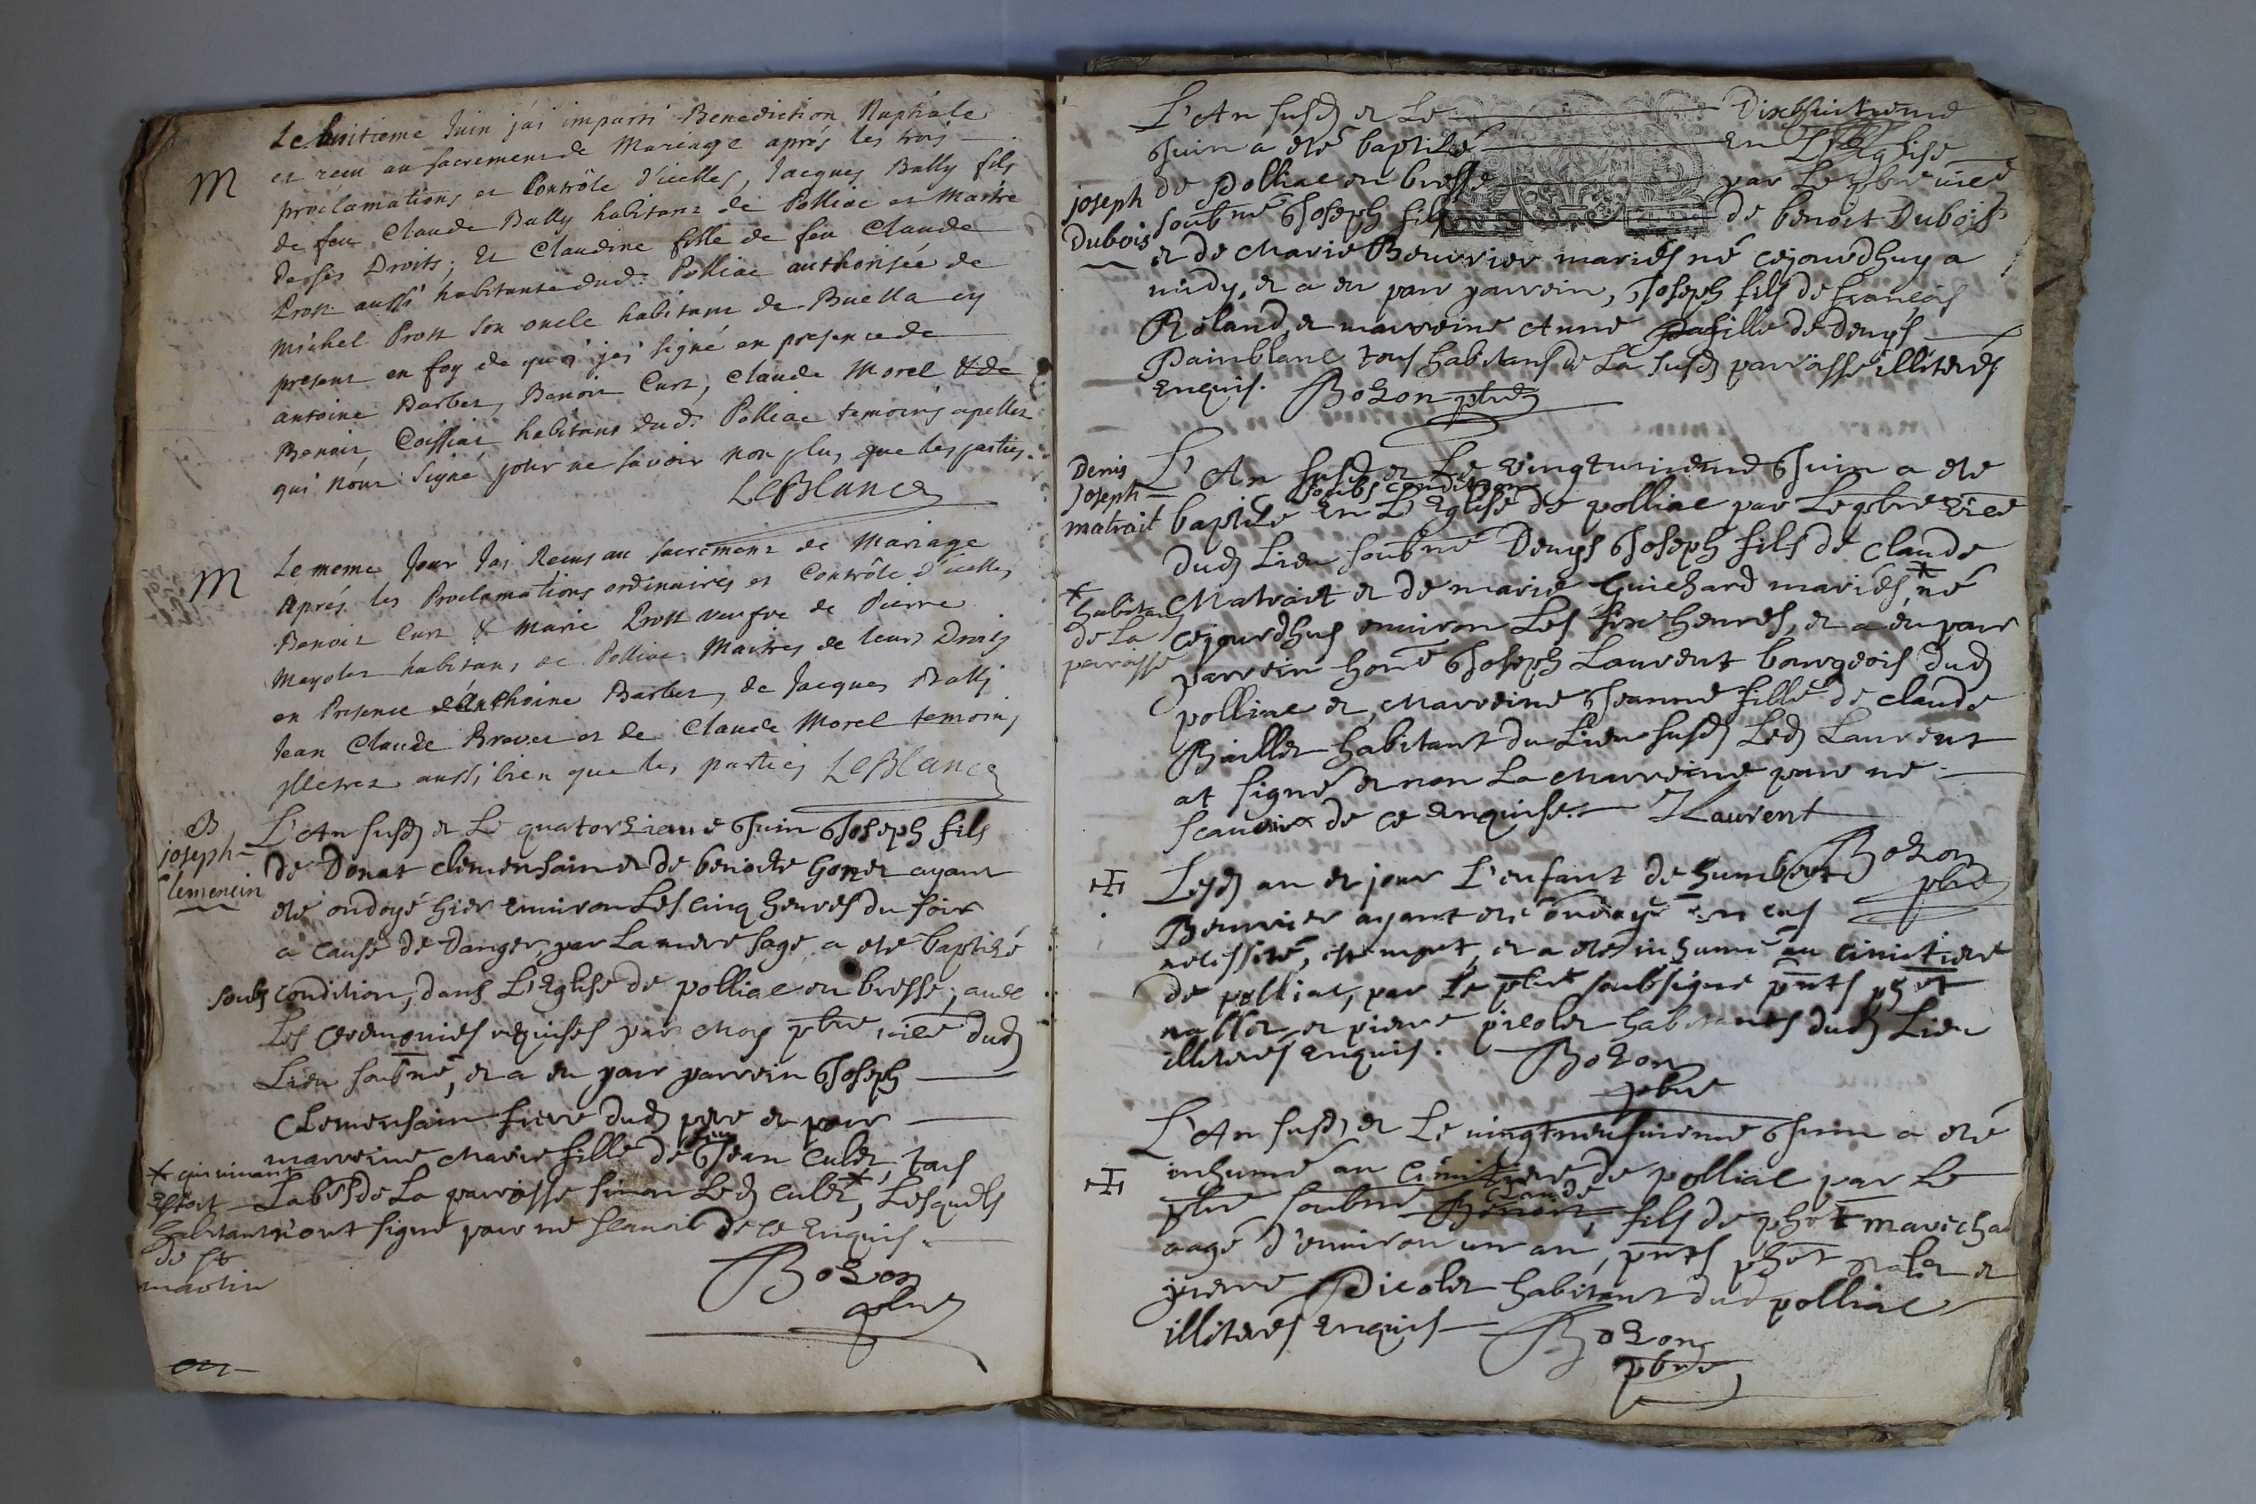 M
Le huitieme Juin j'ai imparti Benediction Nuptiale
et recu au sacrement de Mariage aprés les trois
proclamations et Contrôle d'icelles, Jacques Bally fils
de feu Claude Bally habitant de Polliac et Maitre
de ses Droits, et Claudine fille de feu Claude
Prost aussi habitante dud. Polliac authorisée de
Michel Prost son oncle habitant de Buella cy
present en foy de quoi j'ai signé en presence de
antoine Barbet, Benoit Curt, Claude Morel & de
Benoit Coissiat habitans dud. Polliac temoins apellez
qui n'ont signé pour ne savoir non plus que les parties.
LeBlanc
M
Le meme Jour J'ai Recus au sacrement de Mariage
Aprés les Proclamations ordinaires et Contrôle d'icelles
Benoit Curt & Marie Prost veufve de Pierre
Mayolet habitans de Polliac Maitres de leurs Droits
en Presence d'Anthoine Barbet, de Jacques Bally
Jean Claude Brevet et de Claude Morel temoins
illetrez aussi bien que les parties LeBlanc
B
joseph
clemencin
L'An susd et Le quatorzieme Juin Joseph fils
de Donat Clemensain et de benoite Gonet ayant
eté ondoyé hier environ Les cinq heures du soir
a cause de danger, par La mere sage, a eté baptizé
soubs condition, dans L'Eglise de polliac en bresse, avec
Les ceremonies requises par Moy pbre vice dud
Lieu soubné, et a eu pour parrein Joseph
Clemensain frere dud pere et pour
marreine Marie fille de feu Jean Culet, tous
habts de La parroisse sinon Led Culet*, Lesquels
n'ont signé pour ne scavoir de ce Enquis.
* qui vivant
Estoit
habitant
de st
martin
Bozon
pbre
joseph
Dubois
L'An susd et Le Dixhuitieme
Juin a eté baptizé En L'Eglise
de Polliac en bresse par Le pbre vice
soubné Joseph fils de benoit Dubois
et de Marie Beurrier mariés né cejourdhuy a
midy, et a eu pour parrein, Joseph fils de françois
Roland, et marreine Anne fille de Denys
Painblanc tous habitans de La susd parroisse illiterés
Enquis. Bozon pbre
Denis
Joseph
matrait
L'An susd et Le vingtunieme Juin a eté
baptizé soubs condition En L'Eglise de polliac par Le pbre vice
dud Lieu soubné Denys Joseph fils de claude
Matrait et de marie Guichard mariés,* né
cejourdhuy environ Les six heures, et a eu pour
parrein honé Joseph Laurent bourgeois dud
polliac et, Marreine Jeanne fille de claude
Baillet habitant du Lieu susd Led Laurent
at signé et non La Marreine pour ne
scavoir de ce Enquise. JLaurent
* habitans
de La
parroisse
Bozon
pbre
Lesd an et jour L'enfant de humbert
Beurrier ayant eté ondoyé en cas
necessité, et mort, et a eté inhumé au cimitiere
de polliac, par Le pbre soubsigné pnts phbt
nallet et pierre picolet habitants dud Lieu
illiterés Enquis. Bozon
pbre
L'An susd, et Le vingtneufvieme Juin a eté
inhumé au Cimitiere de polliac par Le
pbre soubné Benoit Claude, fils de phbt marichal
aagé d'environ un an, pnts phbt nalet et
pierre Picolet habitant dud polliac
illiterés Enquis Bozon
pbre